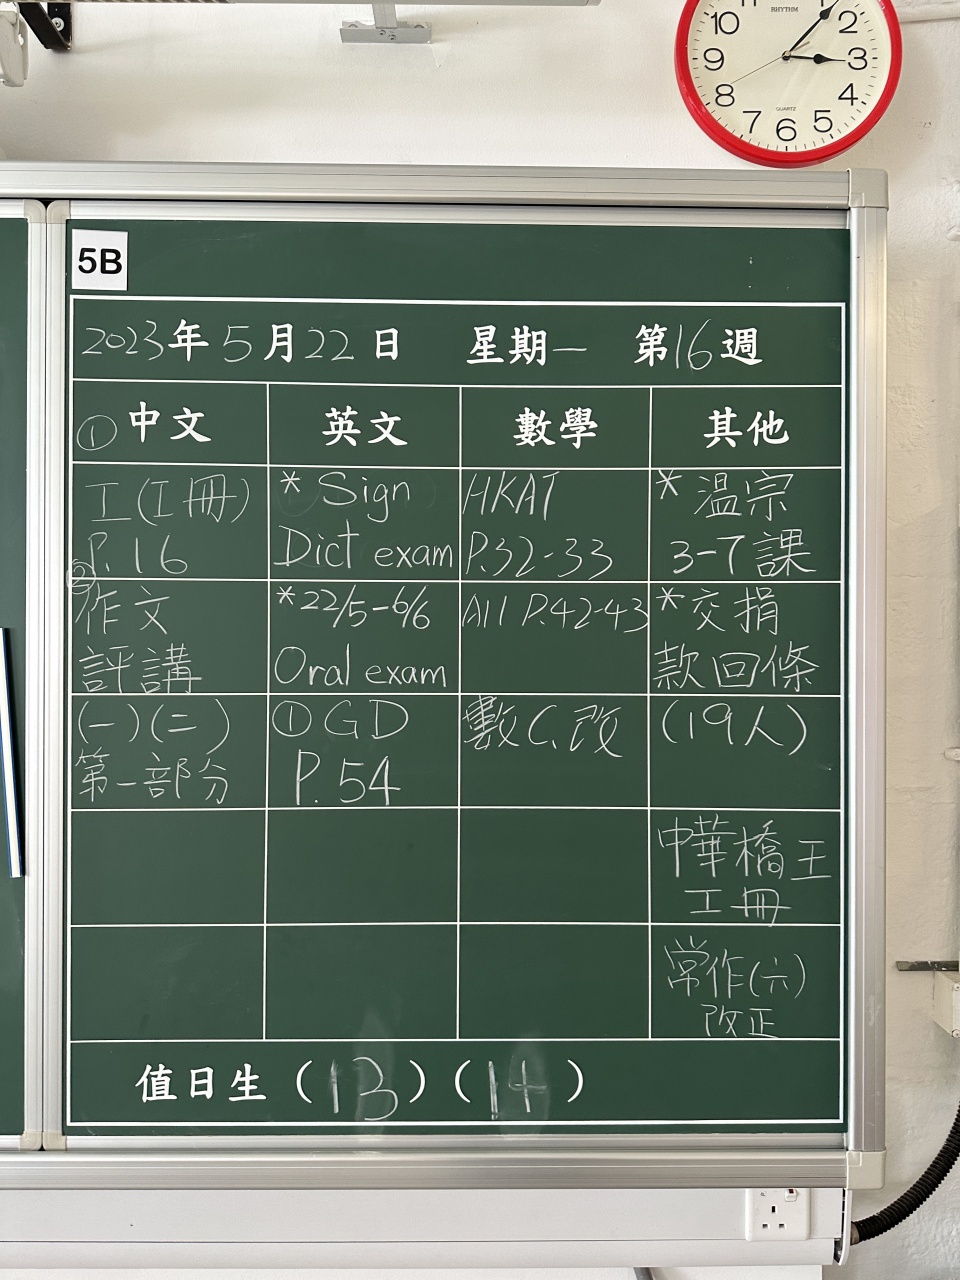 11 1
10 RHYTHM 2
9 3
8 QUARTZ 4
7 6 5
5B
2023年5月22日 星期一 第16週
①中文 英文 數學 其他
工(工冊)
P.16
* Sign
Dict exam
HKAT
P.32-33
* 溫宗
3-7課
②作文
評講
*22/5-6/6
Oral exam
All P.42-43
*交捐
款回條
(一)(二)
第一部分
①GD
P.54
數C.改
(19人)
中華橋王
工冊
常作(六)
改正
值日生(13)(14)